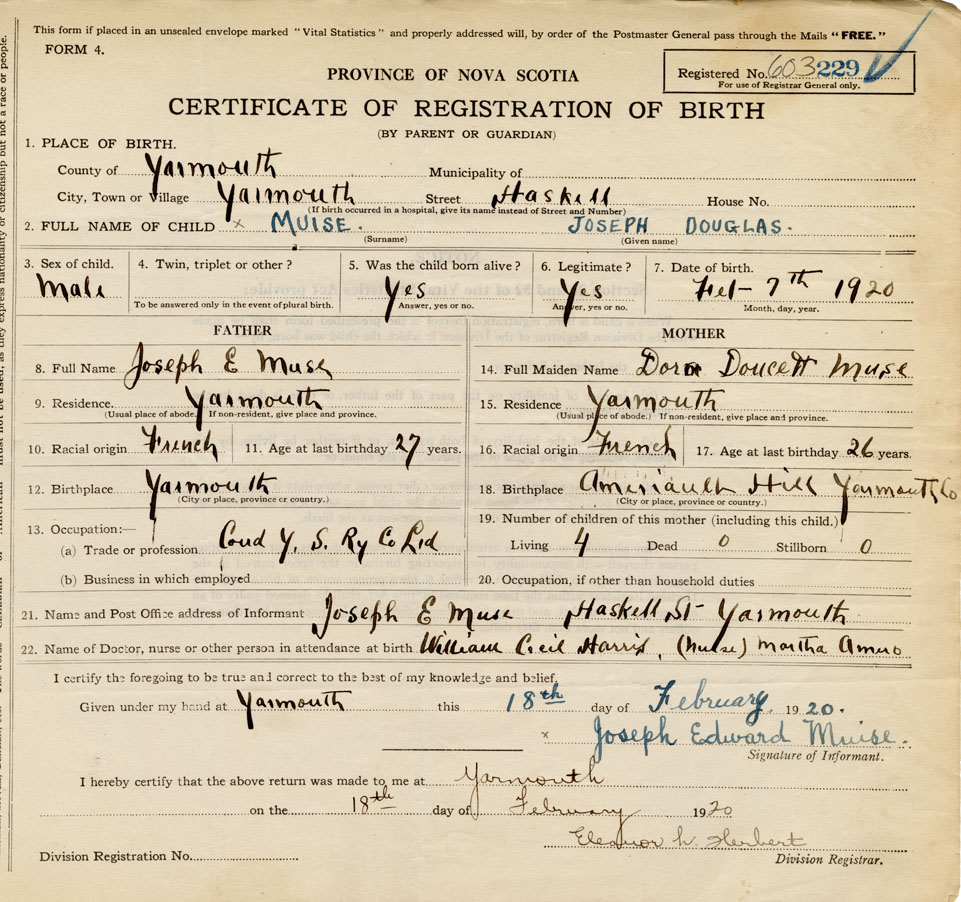 This form if placed in an unsealed envelope marked "Vital Statistics" and properly addressed will, by order of the Postmaster General pass through the Mails "FREE."
FORM 4.
Registered No. 603229
For use of Registrar General only.
PROVINCE OF NOVA SCOTIA
CERTIFICATE OF REGISTRATION OF BIRTH
(BY PARENT OR GUARDIAN)
1. PLACE OF BIRTH.
County of Yarmouth Municipality of
City, Town or Village Yarmouth Street Haskell House No.
(If birth occurred in a hospital, give its name instead of Street and Number)
2. FULL NAME OF CHILD x MUISE. JOSEPH DOUGLAS.
(Surname) (Given name)
3. Sex of child. 4. Twin, triplet or other? 5. Was the child born alive? 6. Legitimate? 7. Date of birth.
Male Yes Yes Feb- 7th 1920
To be answered only in the event of plural birth. Answer, yes or no. Answer, yes or no. Month, day, year.
FATHER MOTHER
8. Full Name Joseph E Muse 14. Full Maiden Name Dora Doucett Muse
9. Residence. Yarmouth 15. Residence Yarmouth
(Usual place of abode.) If non-resident, give place and province. (Usual place of abode.) If non-resident, give place and province.
10. Racial origin French 11. Age at last birthday 27 years. 16. Racial origin French 17. Age at last birthday 26 years.
12. Birthplace Yarmouth 18. Birthplace Amiriault Hill Yarmouth Co
(City or place, province or country.) (City or place, province or country.)
13. Occupation:— 19. Number of children of this mother (including this child.)
(a) Trade or profession Cond Y. S. Ry Co Ltd Living 4 Dead 0 Stillborn 0
(b) Business in which employed 20. Occupation, if other than household duties
21. Name and Post Office address of Informant Joseph E Muse Haskell St- Yarmouth
22. Name of Doctor, nurse or other person in attendance at birth William Cecil Harris, (Nurse) Martha Amiro
I certify the foregoing to be true and correct to the best of my knowledge and belief.
Given under my hand at Yarmouth this 18th day of February. 1920.
x Joseph Edward Muise.
Signature of Informant.
I hereby certify that the above return was made to me at Yarmouth
on the 18th day of February 1920
Eleanor h. Herbert
Division Registration No. Division Registrar.